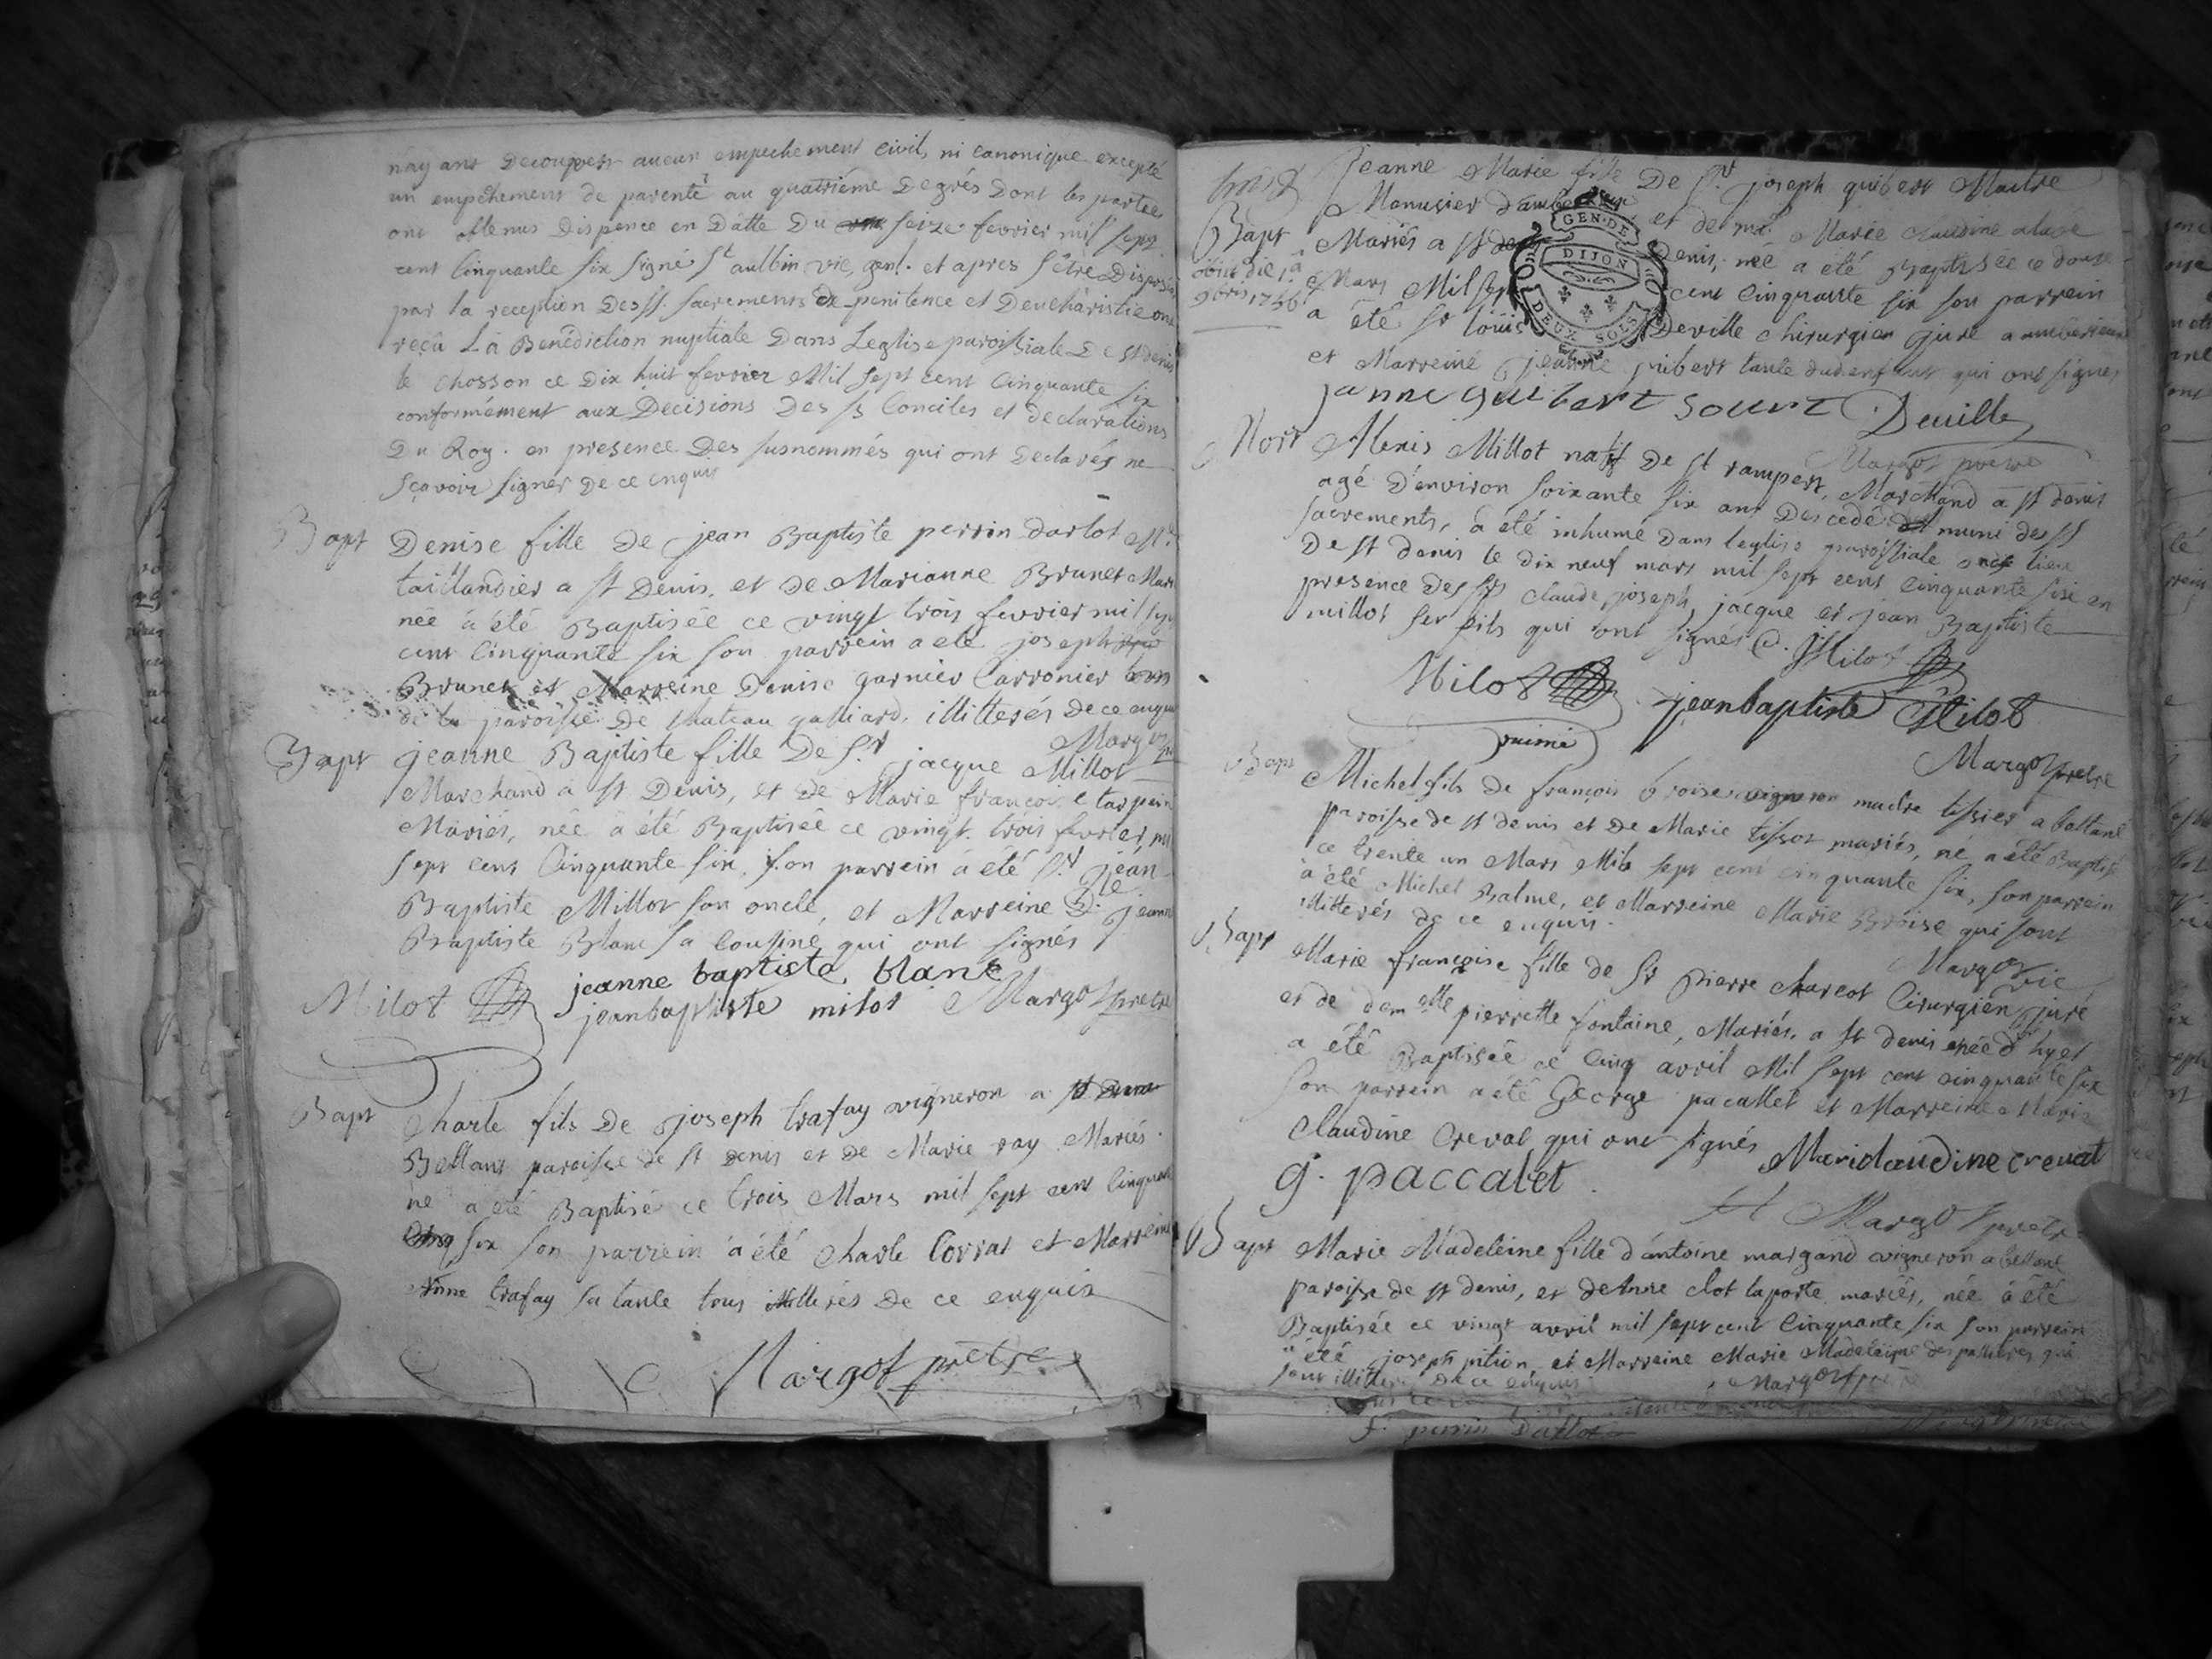 n'ayant decouvert aucun empechement civil, ni canonique excepté
un empêchement de parenté au quatriéme degrés dont les parties
ont obtenus dispence en datte du seize fevrier mil sept
cent cinquante six signé St aulbin vic. gen. et apres s'être disposés
par la reception des SS. sacrements de penitence et d'eucharistie ont
reçu La Benediction nuptiale dans Leglise paroissiale de st denis
le chosson ce dix huit fevrier Mil sept cent cinquante six
conformément aux Decisions des Ss Conciles et declarations
Du Roy. en presence des susnommés qui ont declarés ne
sçavoir signer de ce enquis
Bapt Denise fille de jean Baptiste perrin darlot
taillandier a st Denis, et de Marianne Brunet
née a été Baptisée ce vingt trois fevrier mil sept
cent cinquante six son parrein a été joseph
Brunet et Marreine Denise garnier
de la paroisse de chateau galliard, illitterés de ce enquis
Margot
Bapt jeanne Baptiste fille De Sr jacque Millot
Marchand a st Denis, et de Marie françoise tarpin
Mariés, née a été Baptisée ce vingt trois fevrier, mil
sept cent cinquante six, son parrein a été Sr jean
Baptiste Millot son oncle, et Marreine Dlle jeanne
Baptiste Blanc sa cousine qui ont signés
jeanne baptiste blanc
Milot jeanbaptiste milot Margot pretre
Bapt Charle fils de joseph trafay vigneron a
Bettant paroisse de st denis et de Marie ray Mariés
né a été Baptisé ce trois Mars mil sept cent cinquante
six son parrein a été charle Corrat et Marreine
Anne trafay sa tante tous illitterés de ce enquis
Margot prêtre
Jeanne Marie fille De Sr joseph guibert Maitre
Menusier et de Marie claudine
Bapt Mariés a st Denis, née a été Baptisée ce douze
obiit die 1a Mars Mil cent cinquante six son parrein
a été sr loüis Deville chirurgien juré
et Marreine jeanne guibert tante dud enfant qui ont signés
janne guibert Deville
Margot pretre
Mort Alexis Millot natif de st rampert, Marchand a st denis
agé d'environ soixante six ans decedé muni des SS
sacrements, a été inhumé dans leglise paroissiale
De st denis le dix neuf mars mil sept cent cinquante six en
presence des srs claude, joseph, jacque et jean Baptiste
millot ses fils qui ont signés
Milot
Milot jeanbaptiste Milot
Margot pretre
Bapt Michel fils de françois broise maitre tissier a bettant
paroisse de st denis et de Marie tissot mariés, né a été Baptisé
ce trente un Mars Mil sept cent cinquante six, son parrein
a été Michel Balme, et Marreine Marie Broise qui sont
illitterés de ce enquis.
Margot
Bapt Marie françoise fille de sr pierre charcot Cirurgien juré
et de demelle pierrette fontaine, Mariés, a st denis née d'hyer
a été Baptisée ce cinq avril Mil sept cent cinquante six
son parrein a été George pacallet et Marreine Marie
Claudine Crevat qui ont signés
g. paccalet Mariclaudine crevat
Margot pretre
Bapt Marie Madeleine fille d'antoine margand vigneron a bettant
paroisse de st denis, et de Anne clot laporte mariés, née a été
Baptisée ce vingt avril mil sept cent cinquante six son parrein
a été joseph pition et Marreine Marie Madeleine qui
sont illitterés de ce enquis
Margot pretre
perrin Darlot
GEN. DE
DIJON
DEUX SOLS